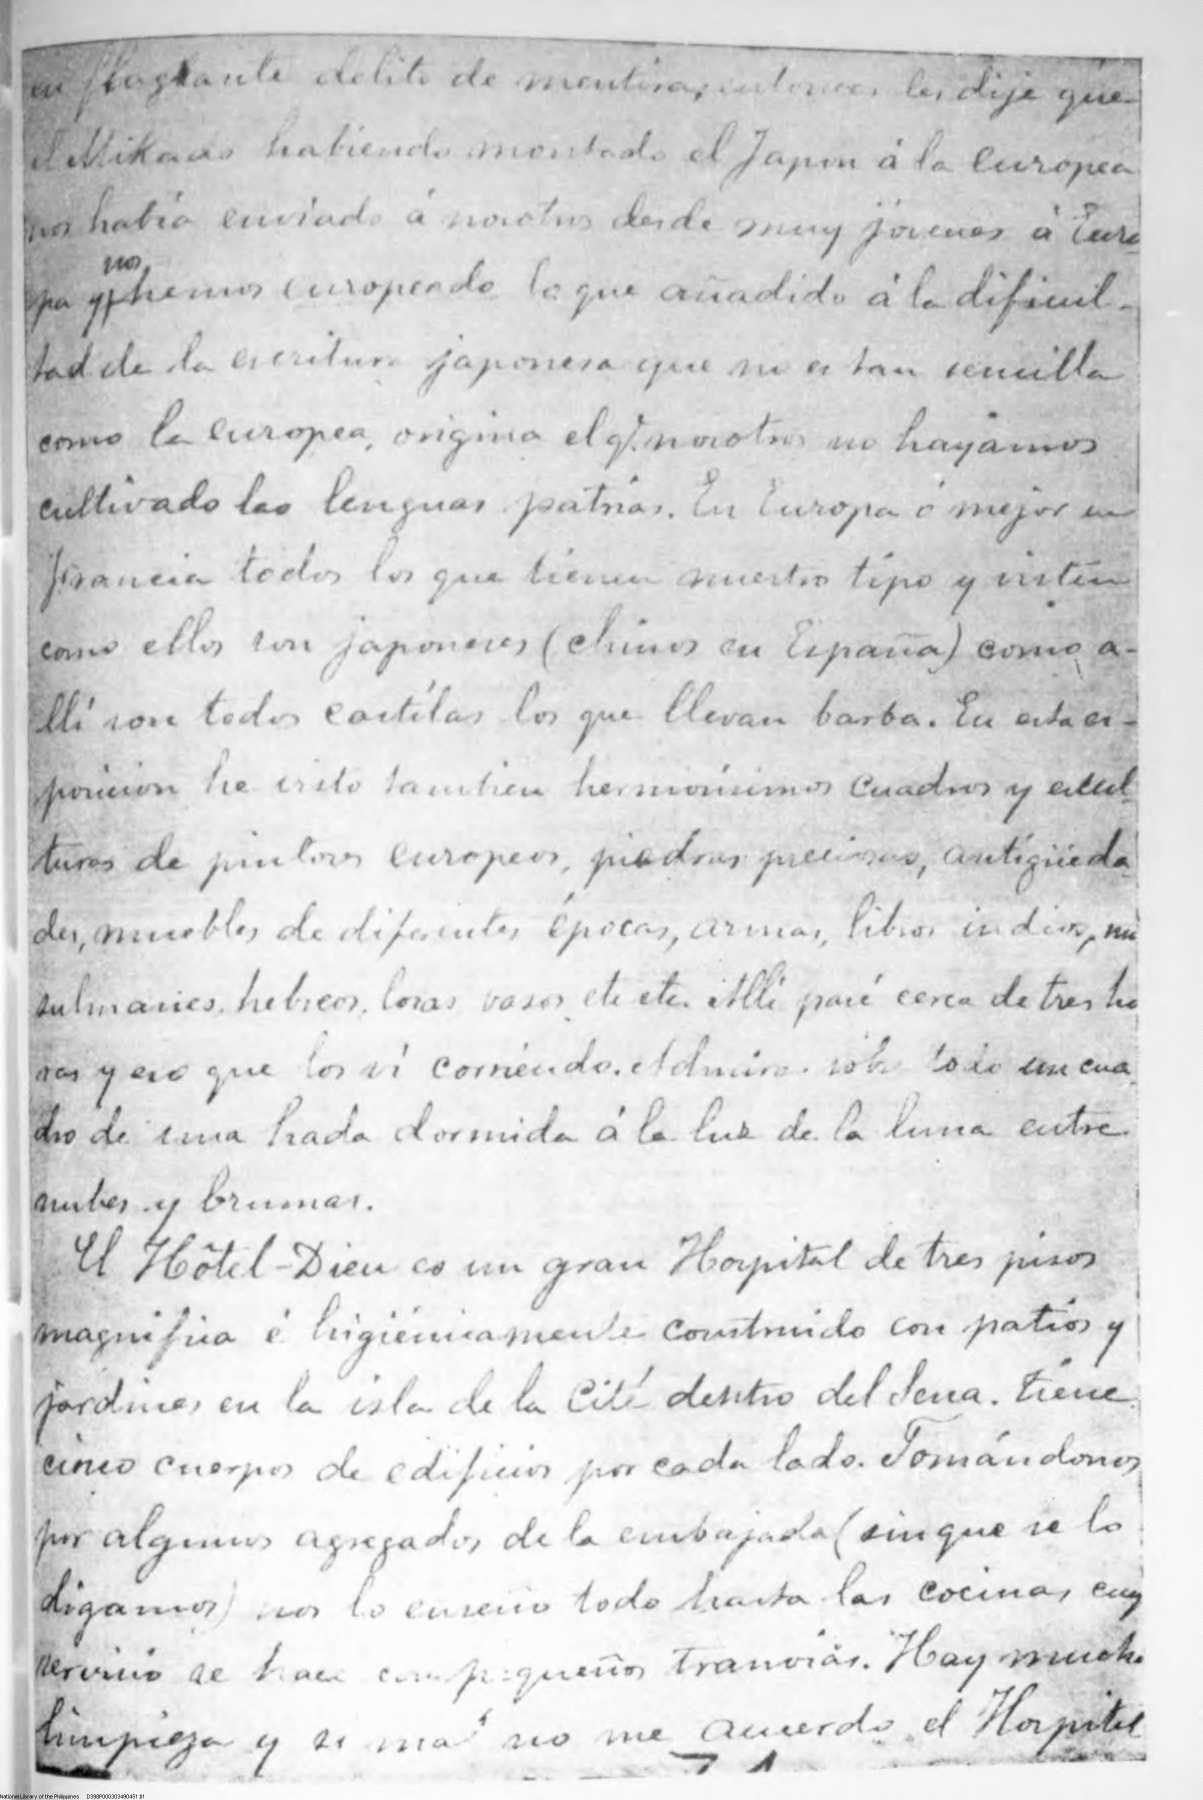 en flagrante delito de mentira, entonces les dije que
el Mikado habiendo montado el Japon á la europea
nos había enviado á nosotros desde muy jóvenes á Euro
pa y nos hemos europeado lo que añadido á la dificul-
tad de la escritura japonesa que no es tan sencilla
como la europea, origina el q. nosotros no hayamos
cultivado las lenguas patrias. En Europa ó mejor en
Francia todos los que tienen nuestro tipo y visten
como ellos son japoneses (chinos en España) como a-
llí son todos castilas los que llevan barba. En esta ex-
posicion he visto tambien hermosísimos cuadros y escul
turas de pintores europeos, piedras preciosas, antigüeda
des, muebles de diferentes épocas, armas, libros indios, mu
sulmanes, hebreos, losas vasos etc etc. Allí paré cerca de tres ho
ras y eso que los ví corriendo. Admiro sobre todo un cua
dro de una hada dormida á la luz de la luna entre
nubes y brumas.
El Hôtel-Dieu es un gran Hospital de tres pisos
magnífica é higiénicamente construido con patios y
jardines en la isla de la Cité dentro del Sena. tiene
cinco cuerpos de edificios por cada lado. Tomándonos
por algunos agregados de la embajada (sin que se lo
digamos) nos lo enseño todo hasta las cocinas cuy
servicio se hace con pequeños tranvías. Hay mucha
limpieza y si mal no me acuerdo el Hospital
National Library of the Philippines D398P000303490451.tif